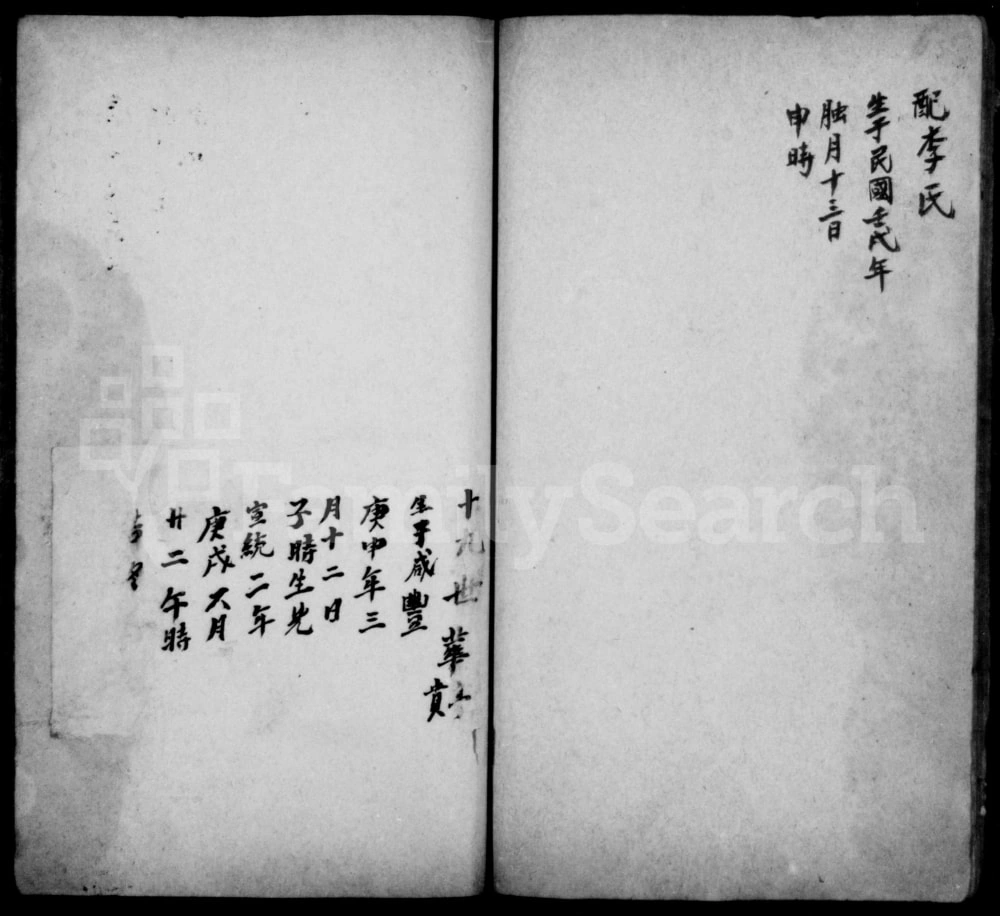 配李氏
生于民國壬戌年
月十三日
申時
十九世華
貴
生于咸豐
庚申年三
月十二日
子時生
宣統二年
庚戌六月
廿二午時
FamilySearch